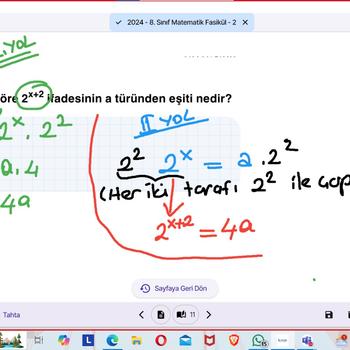 2024 - 8. Sınıf Matematik Fasikül - 2
. YOL
öre 2^x+2 ifadesinin a türünden eşiti nedir?
2^x . 2^2
a . 4
4a
II YOL
2^2 2^x = a . 2^2
(Her iki tarafı 2^2 ile çarp
2^x+2 = 4a
Sayfaya Geri Dön
Tahta
11